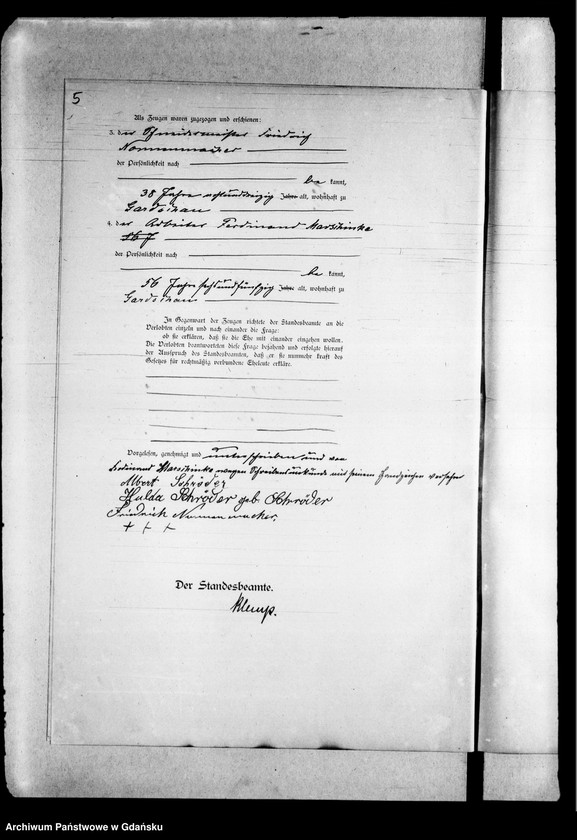 5
Als Zeugen waren zugezogen und erschienen:
3. der Schneidermeister Friedrich
Nonnenmacher
der Persönlichkeit nach
be kannt,
38 Jahre achtunddreizig Jahre alt, wohnhaft zu
4. der Arbeiter Ferdinand
der Persönlichkeit nach
be kannt,
56 Jahre sechsundfünfzig Jahre alt, wohnhaft zu
In Gegenwart der Zeugen richtete der Standesbeamte an die
Verlobten einzeln und nach einander die Frage:
ob sie erklären, daß sie die Ehe mit einander eingehen wollen.
Die Verlobten beantworteten diese Frage bejahend und erfolgte hierauf
der Ausspruch des Standesbeamten, daß er sie nunmehr kraft des
Gesetzes für rechtmäßig verbundene Eheleute erkläre.
Vorgelesen, genehmigt und unterschrieben und von
Ferdinand wegen Schreibensunkunde mit seinem Handzeichen versehen
Albert Schröder
Hulda Schröder geb. Schröder
Friedrich Nonnenmacher,
+ + +
Der Standesbeamte.
Klemp.
Archiwum Państwowe w Gdańsku